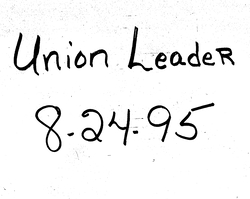 Union Leader
8-24-95